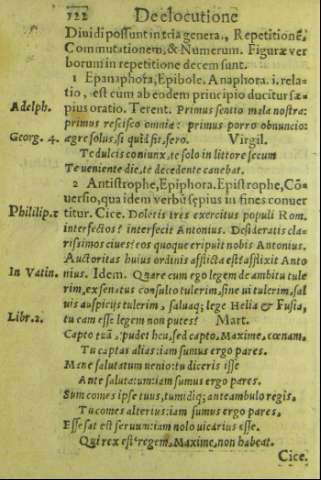 122 De elocutione
Diuidi possunt in tria genera, Repetitionē,
Commutationem, & Numerum. Figuræ ver
borum in repetitione decem sunt.
1 Epanaphora, Epibole. Anaphora. i. rela-
tio, est cum ab eodem principio ducitur sæ-
Adelph. pius oratio. Terent. Primus sentio mala nostra:
primus rescisco omnia: primus porro obnuncio:
Georg. 4. ægre solus, si quid fit, fero. Virgil.
Te dulcis coniunx, te solo in littore secum
Te ueniente die, te decedente canebat.
2 Antistrophe, Epiphora. Epistrophe, Cō-
uersio, qua idem verbū sępius in fines conuer
Phililip. 2 titur. Cice. Doletis tres exercitus populi Rom.
interfectos? interfecit Antonius. Desideratis cla-
rissimos ciues? eos quoque eripuit nobis Antonius.
Auctoritas huius ordinis afflicta est? afflixit Anto
In Vatin. nius. Idem. Quare cum ego legem de ambitu tule
rim, ex senatus consulto tulerim, sine ui tulerim, sal
uis auspicijs tulerim, saluaq; lege Helia & Fusia,
Libr. 2. tu eam esse legem non putes? Mart.
Capto tuā, pudet heu, sed capto, Maxime, cœnam,
Tu captas alias: iam sumus ergo pares.
Mane salutatum uenio: tu diceris isse
Ante salutatum: iam sumus ergo pares.
Sum comes ipse tuus, tumidiq; anteambulo regis,
Tu comes alterius: iam sumus ergo pares.
Esse sat est seruum: iam nolo uicarius esse.
Qui rex est? regem, Maxime, non habeat.
Cice.